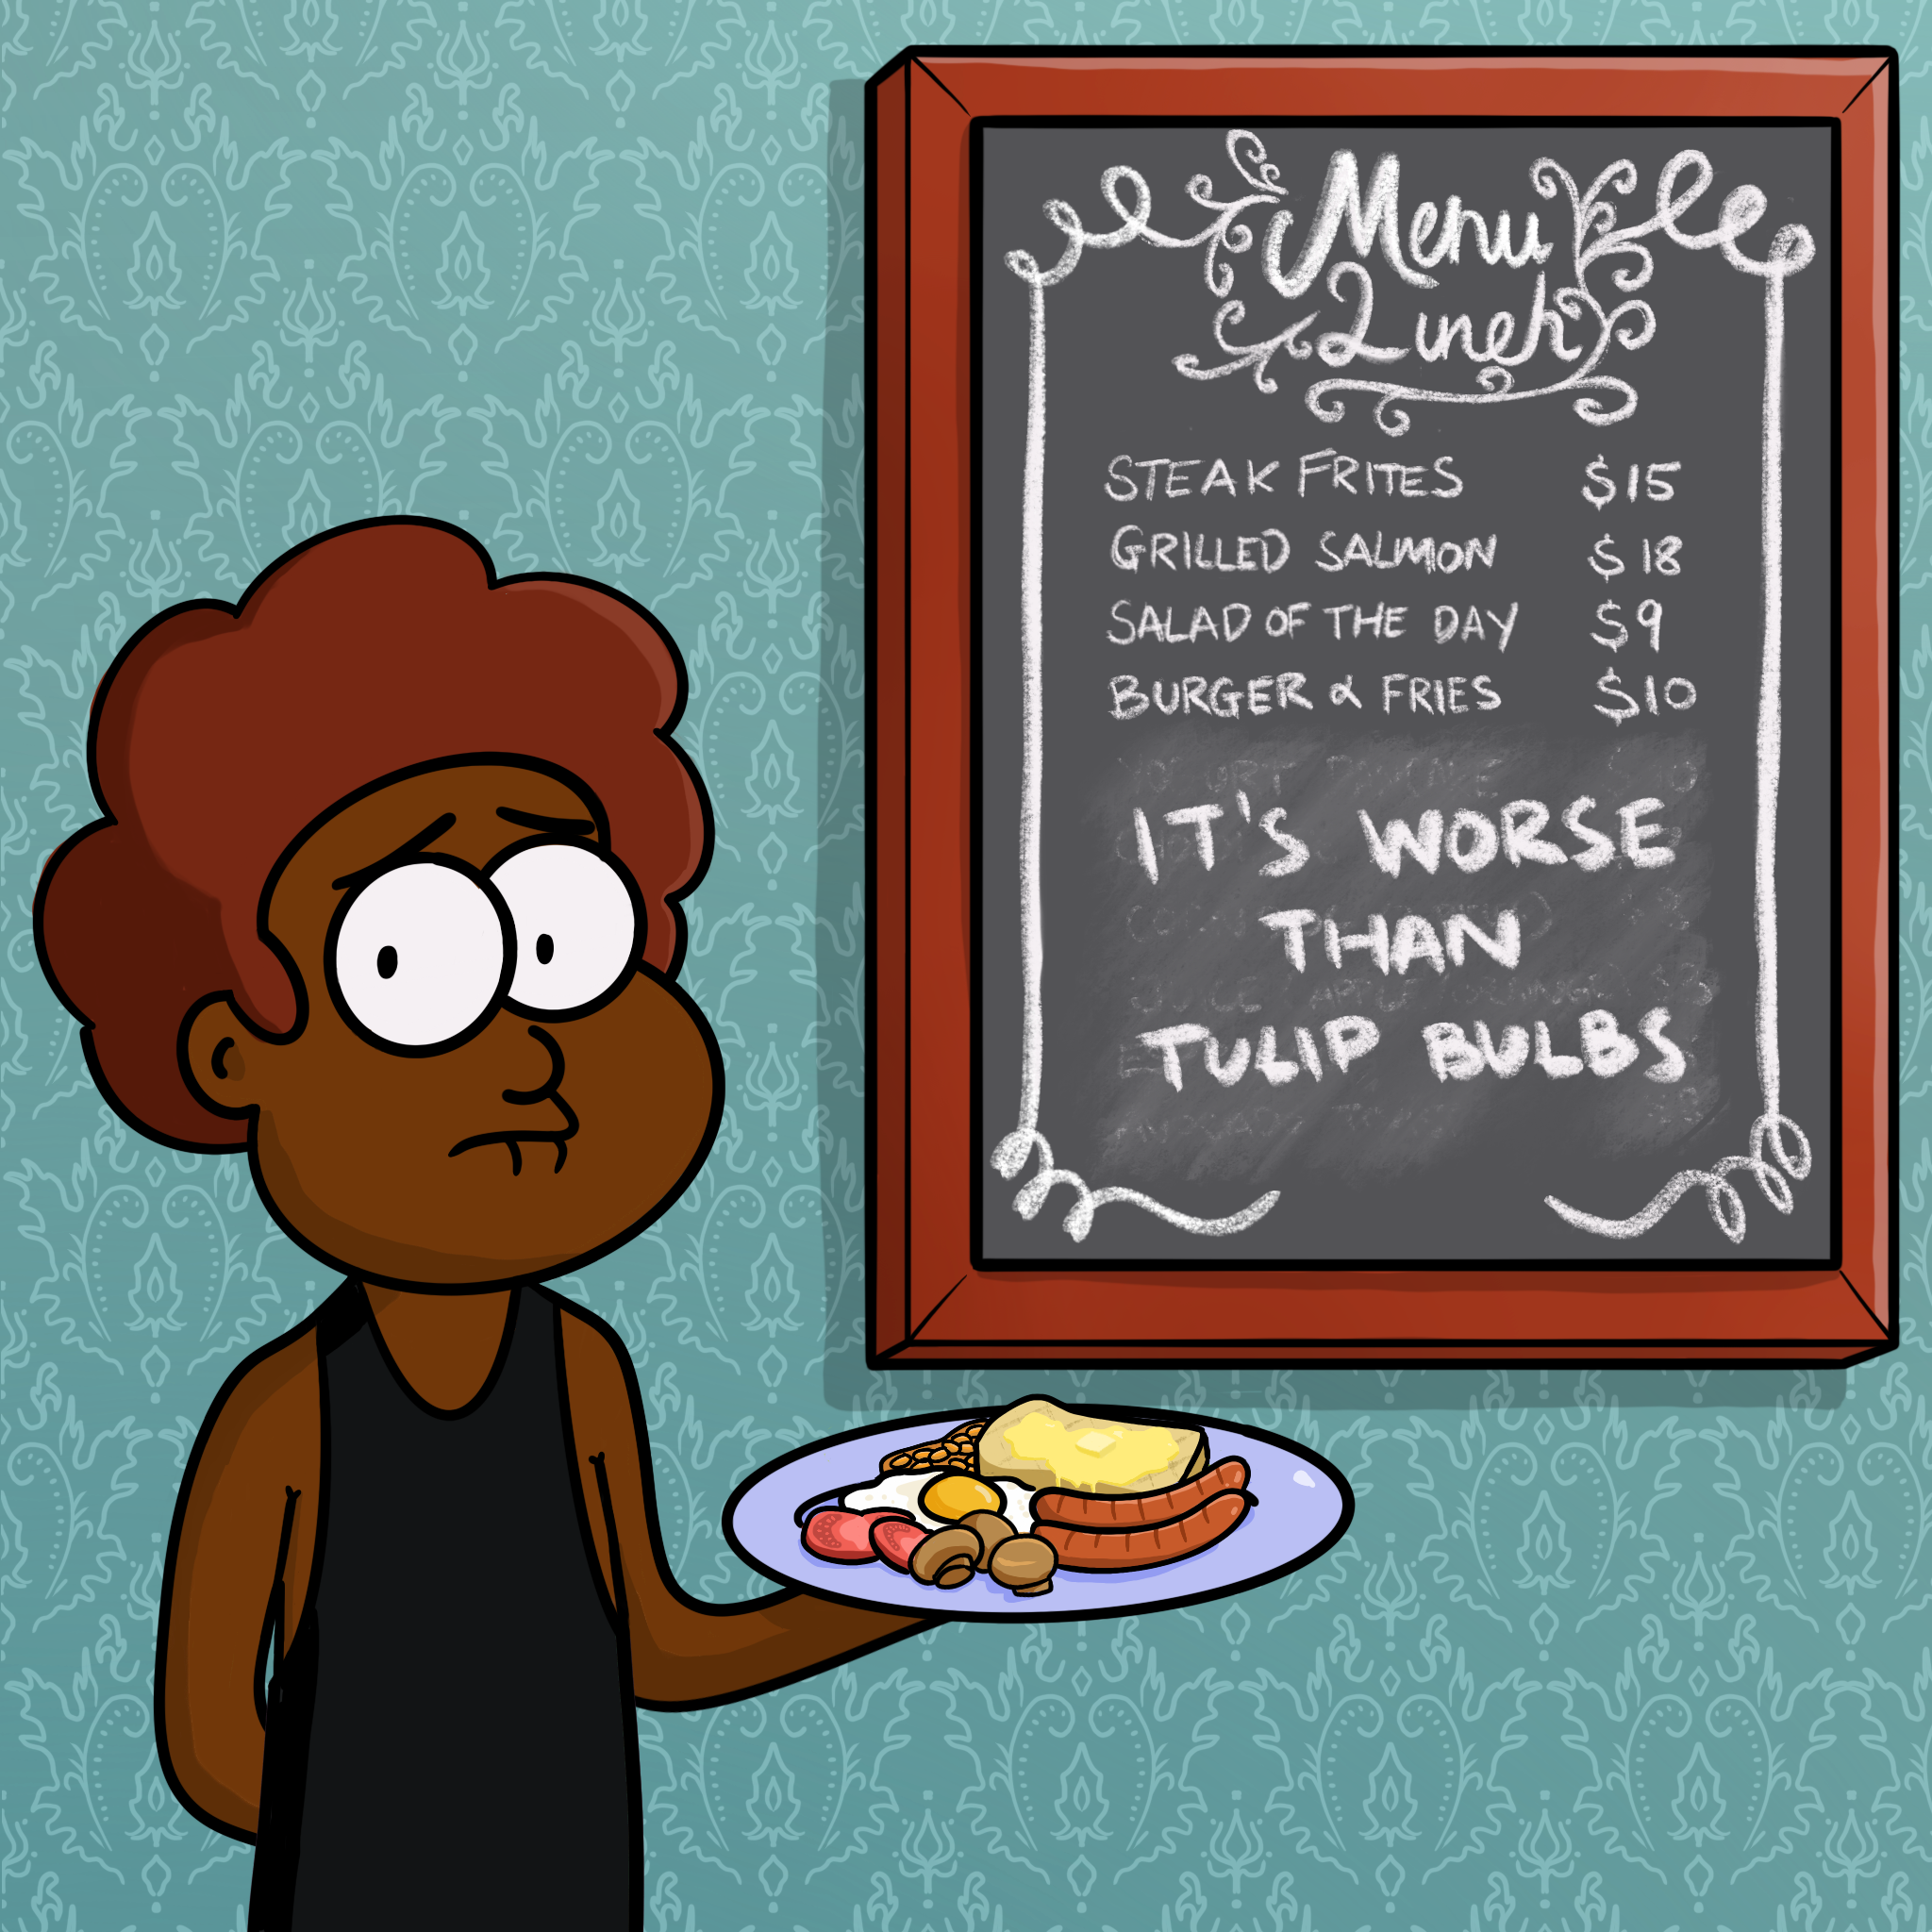 Menu
Lunch
STEAK FRITES $15
GRILLED SALMON $18
SALAD OF THE DAY $9
BURGER & FRIES $10
IT'S WORSE
THAN
TULIP BULBS